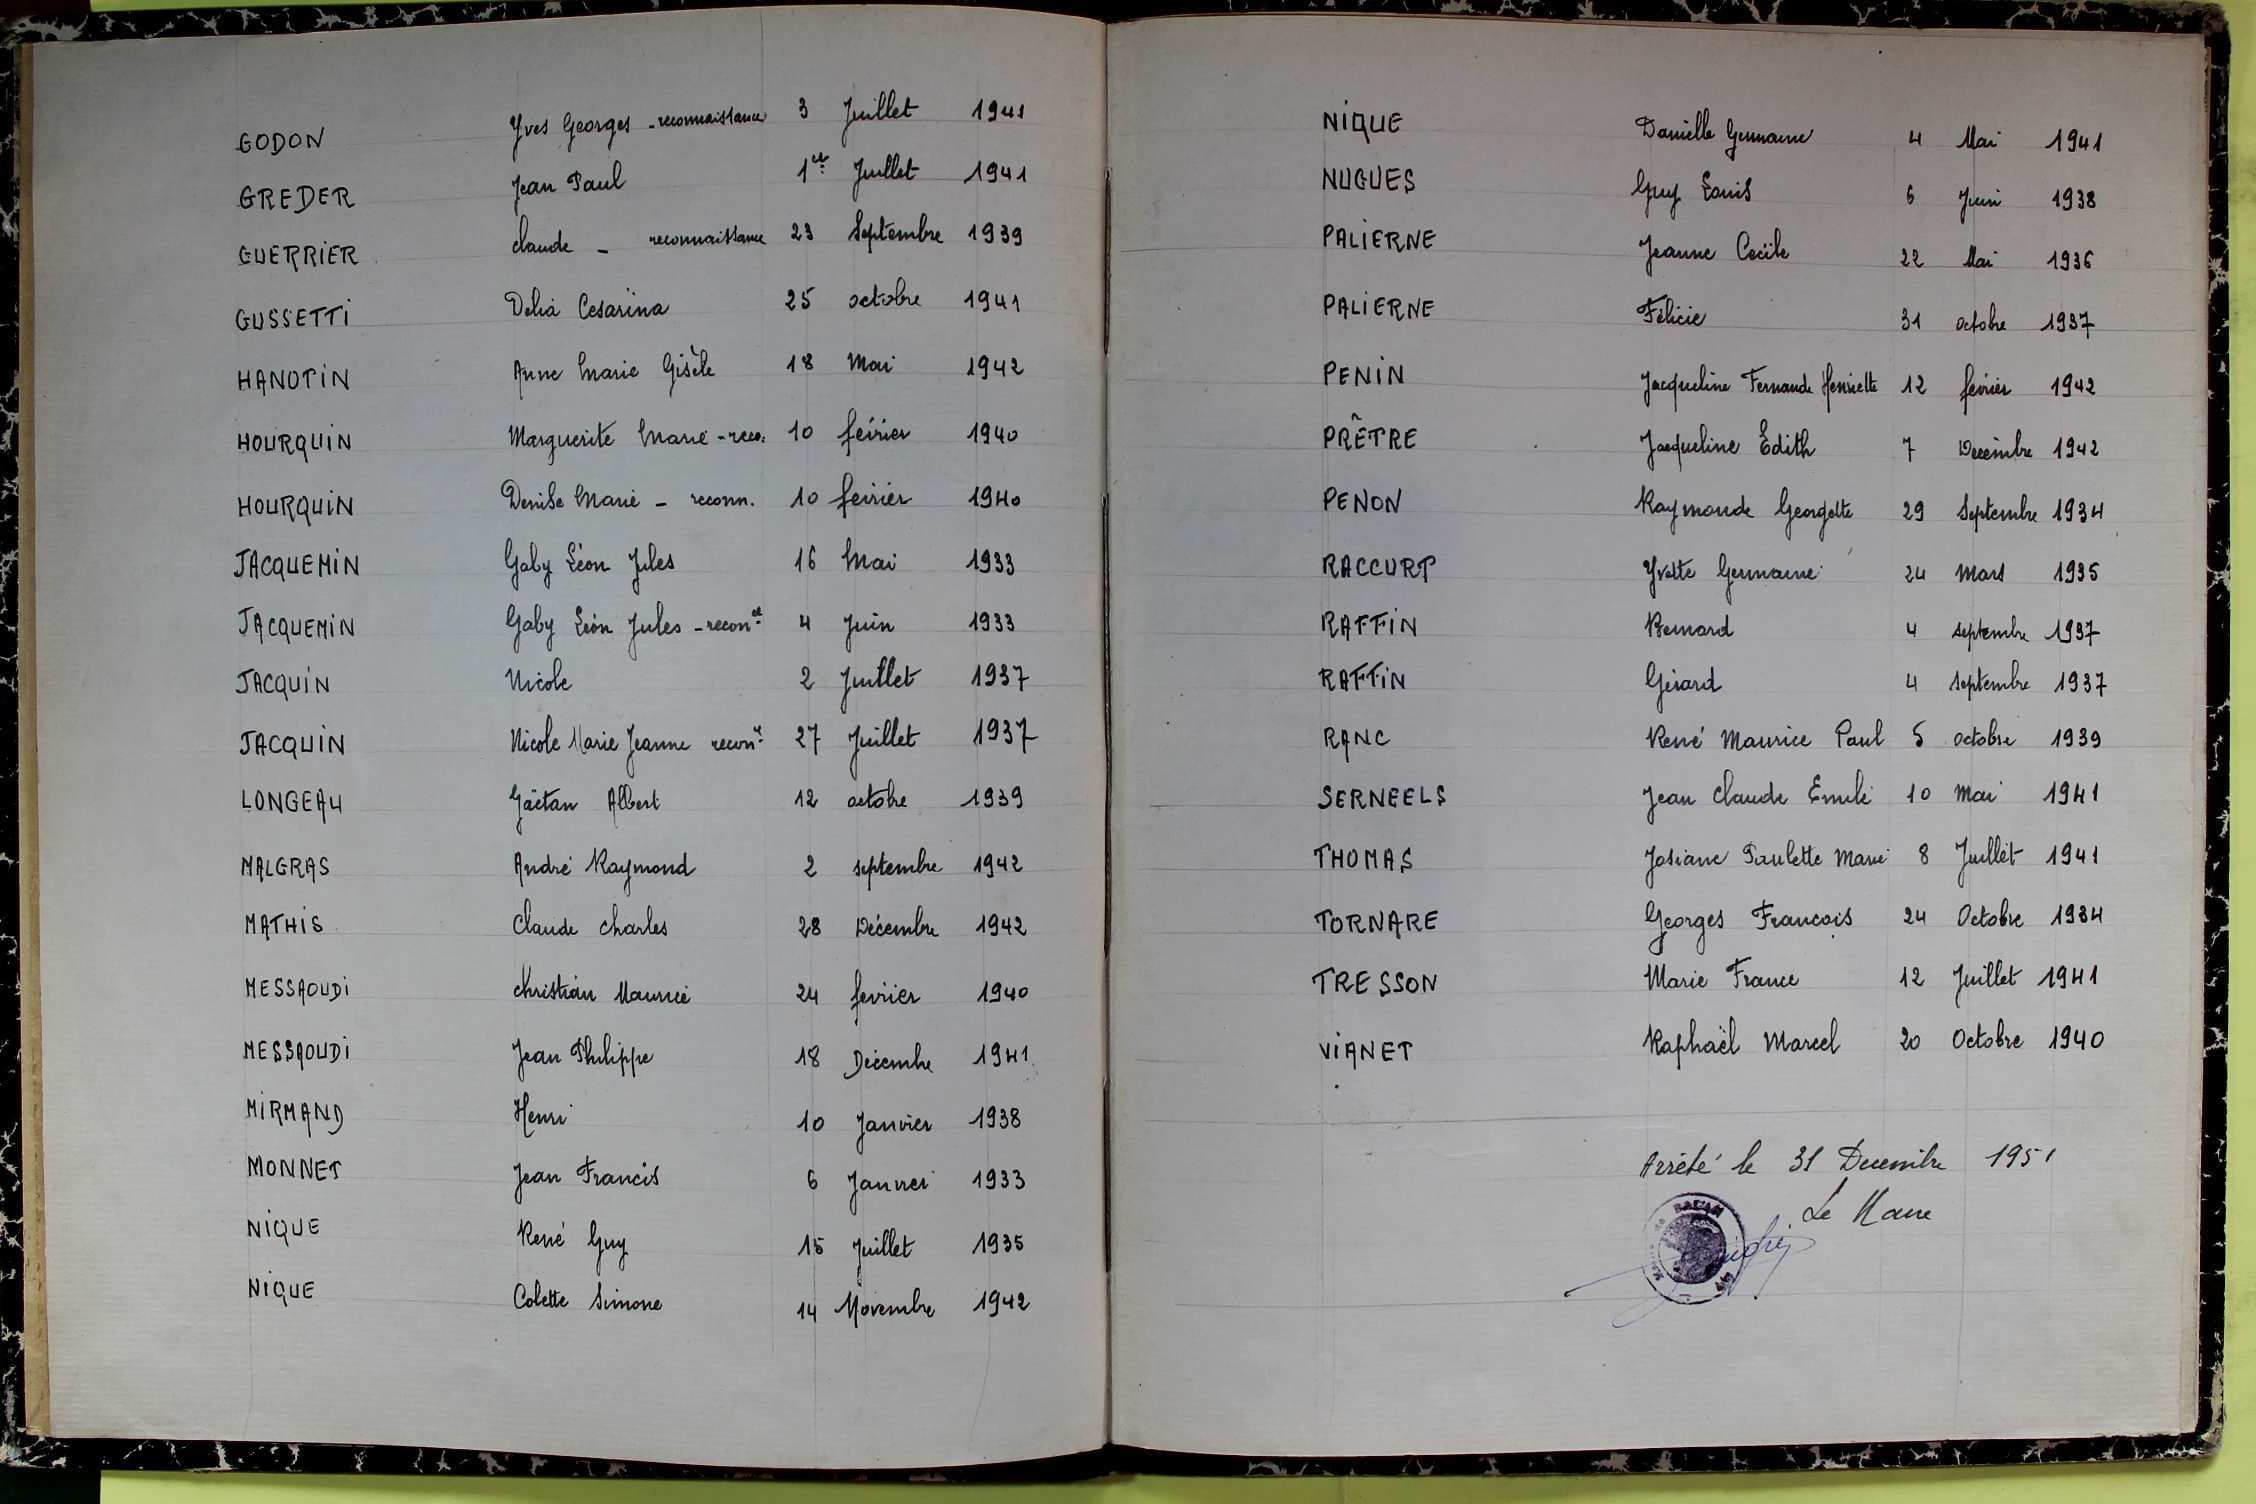 GODON Yves Georges - reconnaissance 3 Juillet 1941
GREDER Jean Paul 1er Juillet 1941
GUERRIER Claude - reconnaissance 23 Septembre 1939
GUSSETTI Délia Cesarina 25 octobre 1941
HANOTIN Anne Marie Gisèle 18 Mai 1942
HOURQUIN Marguerite Marie - reco. 10 février 1940
HOURQUIN Denise Marie - reconn. 10 février 1940
JACQUEMIN Gaby Léon Jules 16 Mai 1933
JACQUEMIN Gaby Léon Jules - recon ce 4 Juin 1933
JACQUIN Nicole 2 Juillet 1937
JACQUIN Nicole Marie Jeanne recon ce 27 Juillet 1937
LONGEAU Gaëtan Albert 12 octobre 1939
MALGRAS André Raymond 2 septembre 1942
MATHIS Claude Charles 28 Décembre 1942
MESSAOUDI Christian Maurice 24 février 1940
MESSAOUDI Jean Philippe 18 Décembre 1941
MIRMAND Henri 10 Janvier 1938
MONNET Jean Francis 6 Janvier 1933
NIQUE René Guy 15 Juillet 1935
NIQUE Colette Simone 14 Novembre 1942
NIQUE Danielle Germaine 4 Mai 1941
NUGUES Guy Louis 6 Juin 1938
PALIERNE Jeanne Cécile 22 Mai 1936
PALIERNE Félicie 31 octobre 1937
PENIN Jacqueline Fernande Henriette 12 février 1942
PRÊTRE Jacqueline Edith 7 Décembre 1942
PENON Raymonde Georgette 29 Septembre 1934
RACCURT Yvette Germaine 24 Mars 1935
RAFFIN Bernard 4 septembre 1937
RAFFIN Gérard 4 septembre 1937
RANC René Maurice Paul 5 octobre 1939
SERNEELS Jean Claude Emile 10 Mai 1941
THOMAS Josiane Paulette Marie 8 Juillet 1941
TORNARE Georges François 24 Octobre 1934
TRESSON Marie France 12 Juillet 1941
VIANET Raphaël Marcel 20 Octobre 1940
Arrêté le 31 Decembre 1951
Le Maire